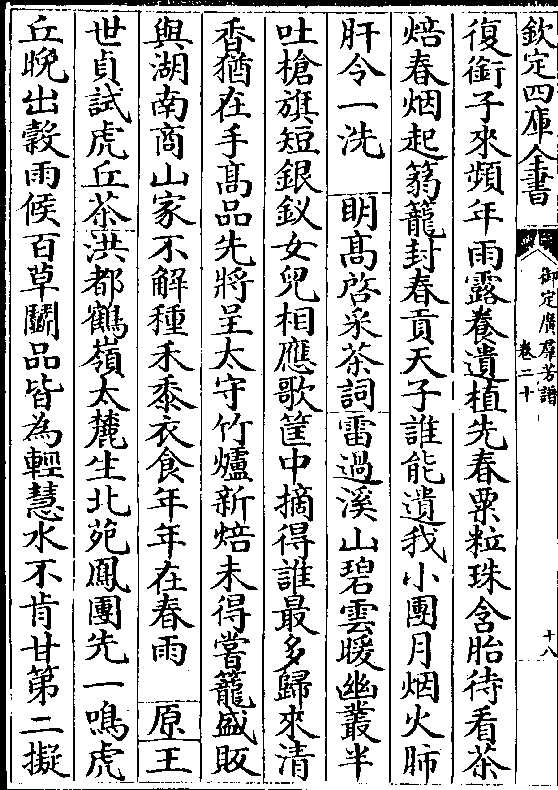 欽定四庫全書
御定廣羣芳譜
卷二十
十八
復銜子來頻年雨露養遺植先春粟粒珠含胎待看茶
焙春烟起篛籠封春貢天子誰能遺我小團月烟火肺
肝令一洗 明高啓采茶詞雷過溪山碧雲暖幽叢半
吐槍旗短銀釵女兒相應歌筐中摘得誰最多歸來清
香猶在手髙品先將呈太守竹爐新焙未得嘗籠盛販
與湖南商山家不解種禾黍衣食年年在春雨 原王
世貞試虎丘茶洪都鶴嶺太麓生北苑鳳團先一鳴虎
丘晚出穀雨候百草鬭品皆為輕慧水不肯甘第二擬